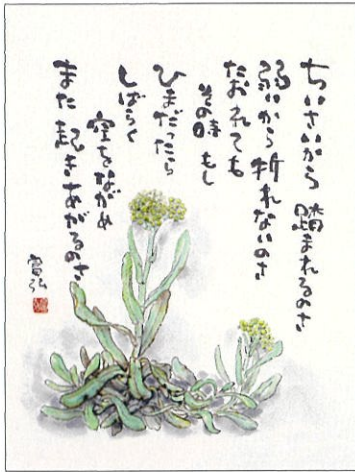 ちいさいから 踏まれるのさ
弱いから 折れないのさ
たおれても
その時 もし
ひまだったら
しばらく
空をながめ
また 起きあがるのさ
富弘